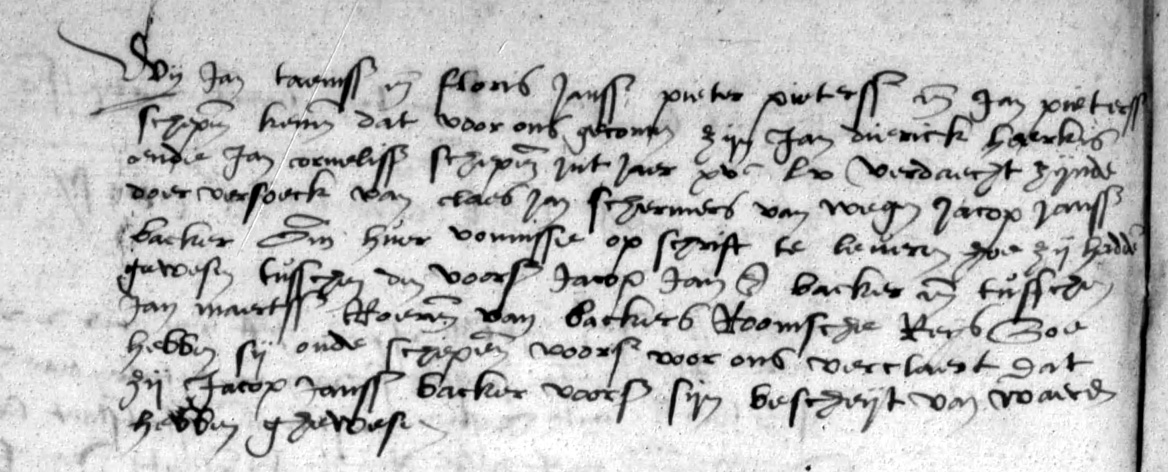 Wij Jan taemss en floris Janss pieter pieterss en Jan pieterss
schepen kennen dat voor ons gecomen zijn Jan dierick haerkis
ende Jan corneliss schepen int jaer xvc lv verdaecht zijnde
door versoeck van claes Jan schermers van wegen Jacop Janss
backer om huer vonnisse op schrift te leveren zoe zij hadde
gewesen tusschen den voors Jacop Jan s backer en tusschen
Jan maertss van backers Roomsche Reys Soe
hebben sij oude schepen voors voor ons verclaert dat
zij Jacop Janss backer voors sijn bescheijt van waerden
hebben ghewesen